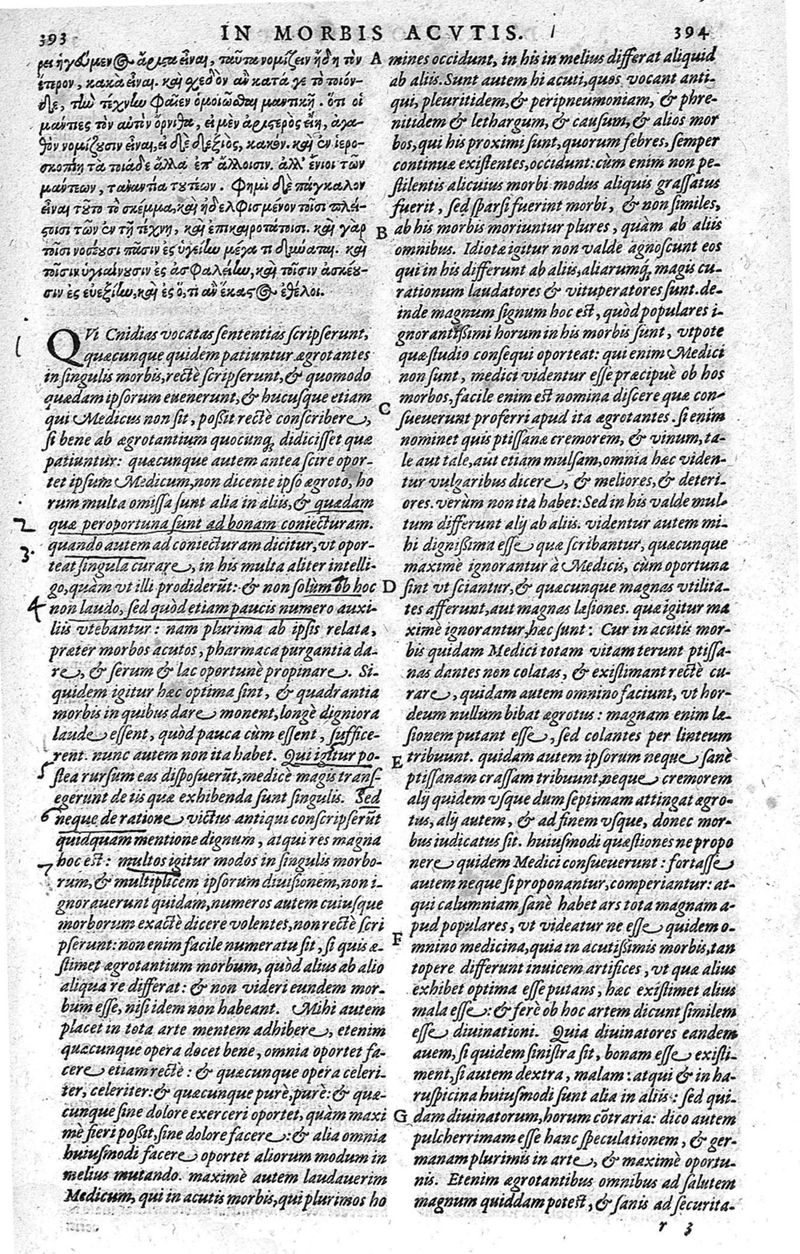 393
IN MORBIS ACVTIS.
394
ρει ἡγούμενος ἄριστα εἶναι, ταῦτα νομίζειν ἤδη τὸν
ἕτερον, κακὰ εἶναι. καὶ σχεδὸν ἂν κατά γε τὸ τοιόν-
δε, τὴν τέχνην φαῖεν ὁμοιῶσθαι μαντικῇ. ὅτι οἱ
μάντιες τὸν αὐτὸν ὄρνιθα, εἰ μὲν ἀριστερὸς εἴη, ἀγα-
θὸν νομίζουσιν εἶναι, εἰ δὲ δεξιὸς, κακόν. καὶ ἐν ἱερο-
σκοπίῃ τὰ τοιάδε ἄλλα ἐπ' ἄλλοισιν. ἀλλ' ἔνιοι τῶν
μάντεων, τἀναντία τυτέων. Φημὶ δὲ πάγκαλον
εἶναι τοῦτο τὸ σκέμμα, καὶ ἠδελφισμένον τοῖσι πλεί-
στοισι τῶν ἐν τῇ τέχνῃ, καὶ ἐπικαιροτάτοισι. καὶ γὰρ
τοῖσι νοσέουσι πᾶσιν ἐς ὑγείην μέγα τι δύναται. καὶ
τοῖσιν ὑγιαίνουσιν ἐς ἀσφαλείην, καὶ τοῖσιν ἀσκέου-
σιν ἐς εὐεξίην, καὶ ἐς ὅ, τι ἂν ἕκαστος ἐθέλοι.
1
QVi Cnidias vocatas sententias scripserunt,
quæcunque quidem patiuntur ægrotantes
in singulis morbis, rectè scripserunt, & quomodo
quædam ipsorum euenerunt, & hucusque etiam
qui Medicus non sit, poßit rectè conscribere,
si bene ab ægrotantium quocunq; didicisset quæ
patiuntur: quæcunque autem antea scire opor-
tet ipsum Medicum, non dicente ipso ægroto, ho
rum multa omissa sunt alia in aliis, & quædam
2 quæ peroportuna sunt ad bonam coniecturam.
3. quando autem ad coniecturam dicitur, vt opor-
teat singula curare, in his multa aliter intelli-
go, quàm vt illi prodiderũt: & non solùm ob hoc
4 non laudo, sed quòd etiam paucis numero auxi-
liis vtebantur: nam plurima ab ipsis relata,
præter morbos acutos, pharmaca purgantia da-
re, & serum & lac oportunè propinare. Si-
quidem igitur hæc optima sint, & quadrantia
morbis in quibus dare monent, longè digniora
laude essent, quòd pauca cùm essent, suffice-
rent. nunc autem non ita habet. Qui igitur po-
5 stea rursum eas disposuerũt, medicè magis trans-
egerunt de iis quæ exhibenda sunt singulis. Sed
6 neque de ratione victus antiqui conscripserũt
quidquam mentione dignum, atqui res magna
7 hoc est: multos igitur modos in singulis morbo-
rum, & multiplicem ipsorum diuisionem, non i-
gnorauerunt quidam, numeros autem cuiusque
morborum exactè dicere volentes, non rectè scri
pserunt: non enim facile numeratu sit, si quis æ-
stimet ægrotantium morbum, quòd alius ab alio
aliqua re differat: & non videri eundem mor-
bum esse, nisi idem non habeant. Mihi autem
placet in tota arte mentem adhibere, etenim
quæcunque opera docet bene, omnia oportet fa-
cere etiam rectè: & quæcunque opera celeri-
ter, celeriter: & quæcunque purè, purè: & quæ-
cunque sine dolore exerceri oportet, quàm maxi
mè fieri poßit, sine dolore facere: & alia omnia
huiusmodi facere oportet aliorum modum in
melius mutando. maximè autem laudauerim
Medicum, qui in acutis morbis, qui plurimos ho
A mines occidunt, in his in melius differat aliquid
ab aliis. Sunt autem hi acuti, quos vocant anti-
qui, pleuritidem, & peripneumoniam, & phre-
nitidem & lethargum, & causum, & alios mor
bos, qui his proximi sunt, quorum febres, semper
continuæ existentes, occidunt: cùm enim non pe-
stilentis alicuius morbi modus aliquis grassatus
fuerit, sed sparsi fuerint morbi, & non similes,
B ab his morbis moriuntur plures, quàm ab aliis
omnibus. Idiotæ igitur non valde agnoscunt eos
qui in his differunt ab aliis, aliarumq; magis cu-
rationum laudatores & vituperatores sunt. de-
inde magnum signum hoc est, quòd populares i-
gnorantißimi horum in his morbis sunt, vtpote
quæ studio consequi oporteat: qui enim Medici
non sunt, medici videntur esse præcipuè ob hos
morbos, facile enim est nomina discere quæ con-
C sueuerunt proferri apud ita ægrotantes. si enim
nominet quis ptissanæ cremorem, & vinum, ta-
le aut tale, aut etiam mulsam, omnia hæc viden-
tur vulgaribus dicere, & meliores, & deteri-
ores. verùm non ita habet: Sed in his valde mul
tum differunt alij ab aliis. videntur autem mi-
hi dignißima esse quæ scribantur, quæcunque
maximè ignorantur à Medicis, cùm oportuna
D sint vt sciantur, & quæcunque magnas vtilita-
tes afferunt, aut magnas læsiones. quæ igitur ma
ximè ignorantur, hæc sunt: Cur in acutis mor-
bis quidam Medici totam vitam terunt ptissa-
nas dantes non colatas, & existimant rectè cu-
rare, quidam autem omnino faciunt, vt hor-
deum nullum bibat ægrotus: magnam enim læ-
sionem putant esse, sed colantes per linteum
E tribuunt. quidam autem ipsorum neque sanè
ptissanam crassam tribuunt, neque cremorem
alij quidem vsque dum septimam attingat ægro-
tus, alij autem, & ad finem vsque, donec mor-
bus iudicatus sit. huiusmodi quæstiones ne propo
nere quidem Medici consueuerunt: fortasse
autem neque si proponantur, comperiantur: at-
qui calumniam sanè habet ars tota magnam a-
pud populares, vt videatur ne esse quidem o-
F mnino medicina, quia in acutißimis morbis, tan
topere differunt inuicem artifices, vt quæ alius
exhibet optima esse putans, hæc existimet alius
mala esse: & ferè ob hoc artem dicunt similem
esse diuinationi. Quia diuinatores eandem
auem, si quidem sinistra sit, bonam esse existi-
ment, si autem dextra, malam: atqui & in ha-
ruspicina huiusmodi sunt alia in aliis: sed qui-
G dam diuinatorum, horum cõtraria: dico autem
pulcherrimam esse hanc speculationem, & ger-
manam plurimis in arte, & maximè oportu-
nis. Etenim ægrotantibus omnibus ad salutem
magnum quiddam potest, & sanis ad securita-
r 3